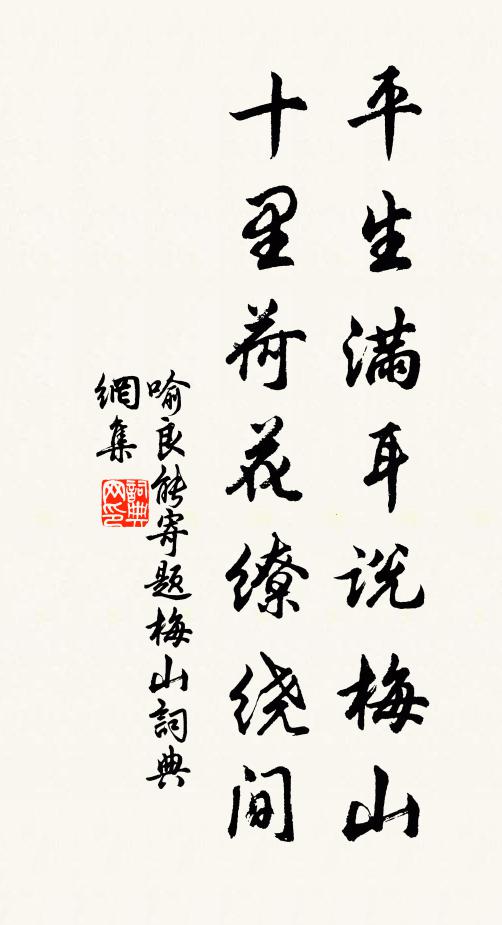 平生满耳说梅山
十里荷花缭绕间
喻良能寄题梅山詞典
網集
詞典
网印